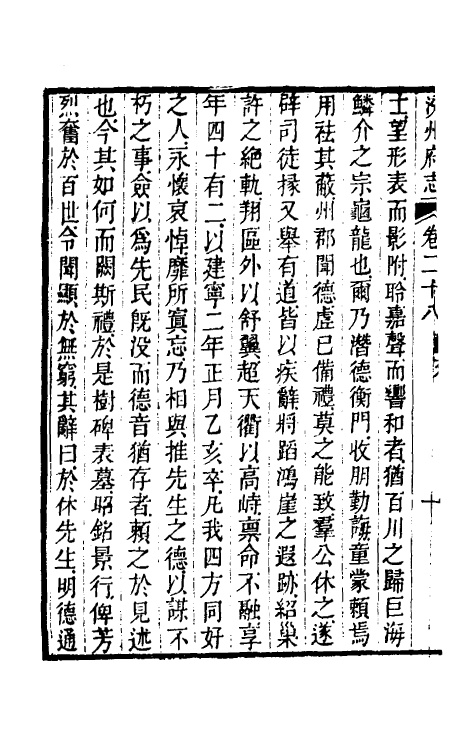 汾州府志 卷二十八 十
土望形表而影附聆嘉聲而響和者猶百川之歸巨海
鱗介之宗龜龍也爾乃潛德衡門收朋勤誨童蒙賴焉
用祛其蔽州郡聞德虛已備禮莫之能致羣公休之遂
辟司徒掾又舉有道皆以疾辭將蹈鴻崖之遐跡紹巢
許之絶軌翔區外以舒翼超天衢以高峙稟命不融享
年四十有二以建寧二年正月乙亥卒凡我四方同好
之人永懷哀悼靡所寘忘乃相與推先生之德以謀不
朽之事僉以爲先民旣没而德音猶存者賴之於見述
也今其如何而闕斯禮於是樹碑表墓昭銘景行俾芳
烈奮於百世令聞顯於無窮其辭曰於休先生明德通